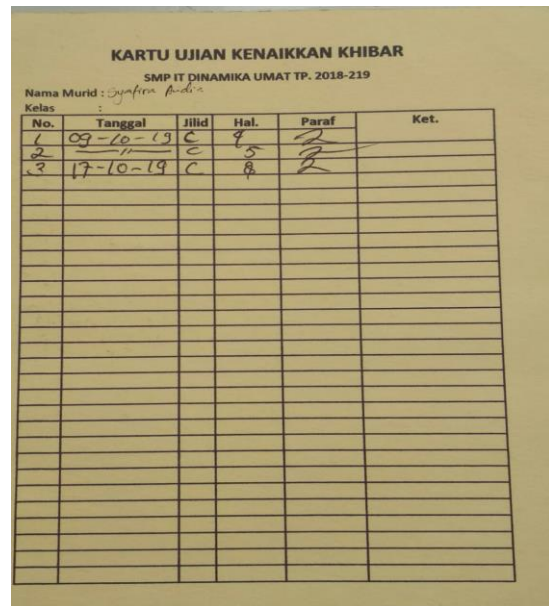 KARTU UJIAN KENAIKKAN KHIBAR
SMP IT DINAMIKA UMAT TP. 2018-219
Nama Murid : Syafira
Kelas :
No. Tanggal Jilid Hal. Paraf Ket.
1 09-10-19 C
2 —〃— C 5
3 17-10-19 C 8